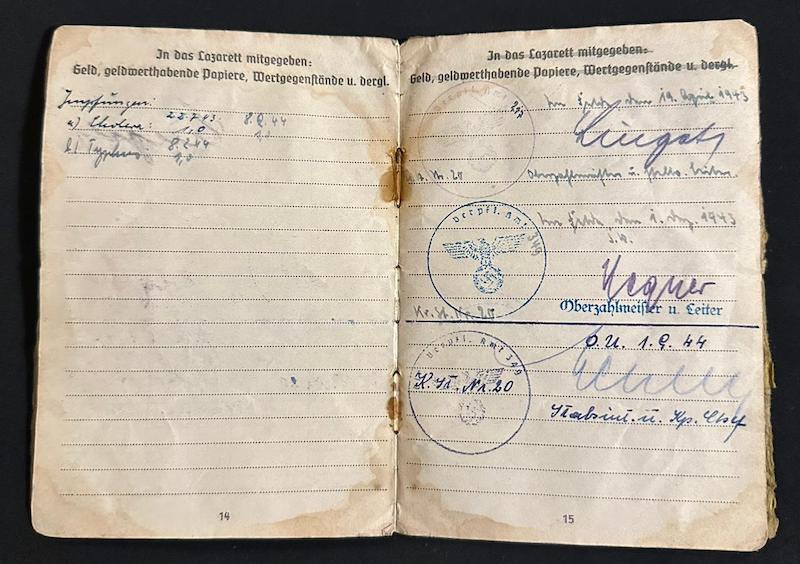 In das Lazarett mitgegeben:
Geld, geldwerthabende Papiere, Wertgegenstände u. dergl.
Impfungen:
a) Cholera: 22.7.43 8.9.44
1,0 1,0
b) Typhus 8.2.44
1,0
14
In das Lazarett mitgegeben:
Geld, geldwerthabende Papiere, Wertgegenstände u. dergl.
Verpfl. Amt
Im Felde den 19. April 1943
Nr. 20
Oberzahlmeister u.
Verpfl. Amt 349
Im Felde den 1. Dez. 1943
Wegner
Kr. St. Nr. 20
Oberzahlmeister u. Leiter
Verpfl. Amt 349
O.U. 1.9.44
K. St. Nr. 20
Stabsint. u. Kp. Chef
15